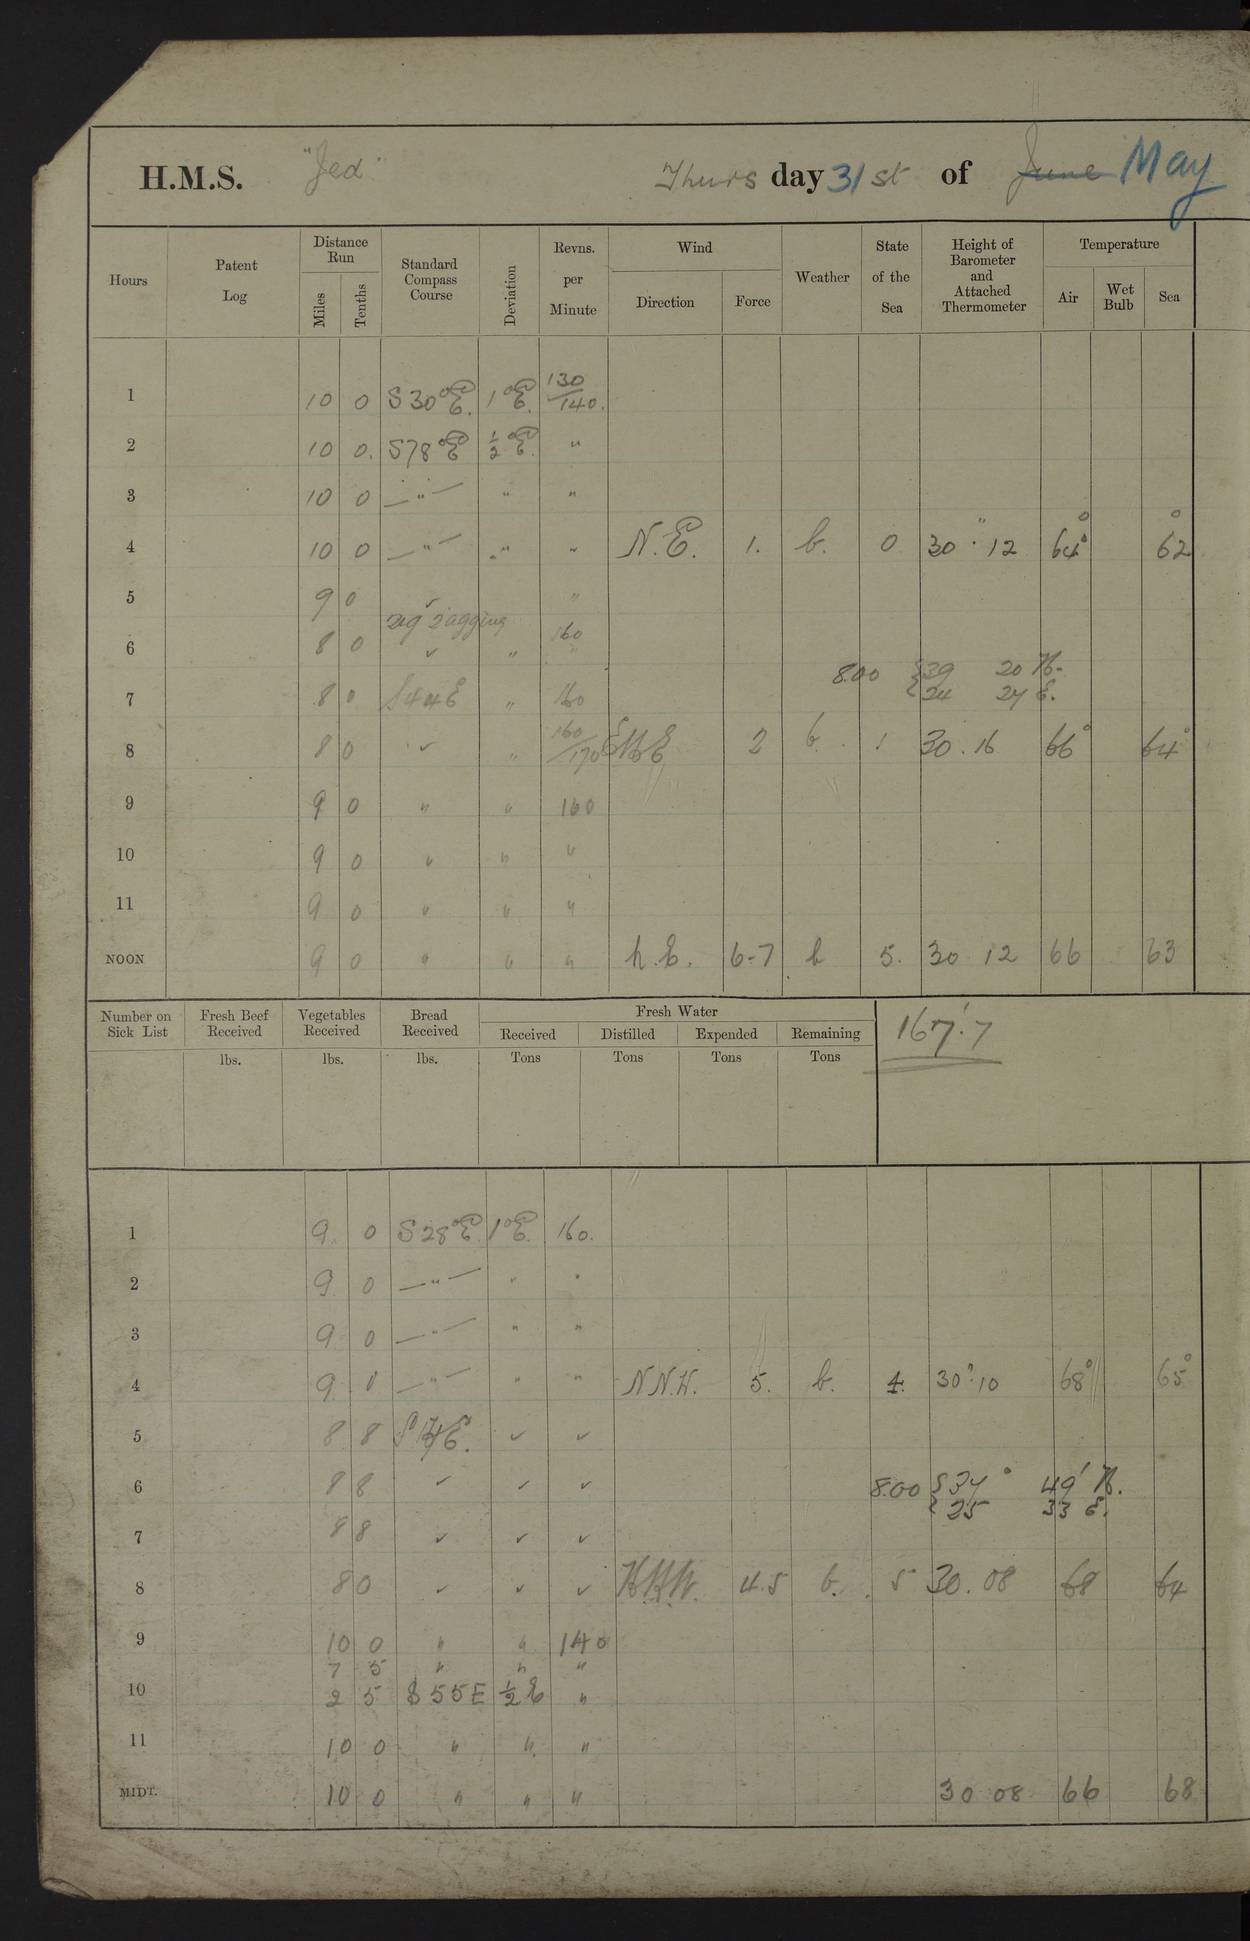 H.M.S. "Jed" Thurs day 31st of June May
Hours Patent Log Distance Run Miles Tenths Standard Compass Course Deviation Revns. per Minute Wind Direction Force Weather State of the Sea Height of Barometer and Attached Thermometer Temperature Air Wet Bulb Sea
1 10 0 S 30° E. 1° E. 130/140.
2 10 0. S 78° E ½° E. "
3 10 0 — " — " "
4 10 0 — " — " " N.E. 1. b. 0 30 . 12 64° 62
5 9 0 "
zig zagging
6 8 0 ✓ " 160
8.00 { 39 20 N.
{ 24 27 E.
7 8 0 S 44 E " 160
8 8 0 ✓ " 160/170 ENE 2 b. 1 30 . 16 66° 64°
9 9 0 " " 160
10 9 0 " " "
11 9 0 " " "
NOON 9 0 " " " N.E. 6-7 b 5. 30 12 66 63
Number on Sick List Fresh Beef Received lbs. Vegetables Received lbs. Bread Received lbs. Fresh Water Received Tons Distilled Tons Expended Tons Remaining Tons
167.'7
1 9 0 S 28° E 1° E. 160.
2 9 0 — " — " "
3 9 0 — " — " "
4 9 0 — " — " " N N.W. 5. b. 4. 30 . 10 68° 65°
5 8 8 ✓ ✓
6 8 8 ✓ ✓ ✓ 8.00 { 37° 49' N.
{ 25 33 E.
7 8 8 ✓ ✓ ✓
8 8 0 ✓ ✓ ✓ N.N.W. 4.5 b. 5 30 . 08 68 64
9 10 0 " " 140
7 5 " " "
10 2 5 S 55 E ½ E "
11 10 0 " " "
MIDT. 10 0 " " " 30 08 66 68